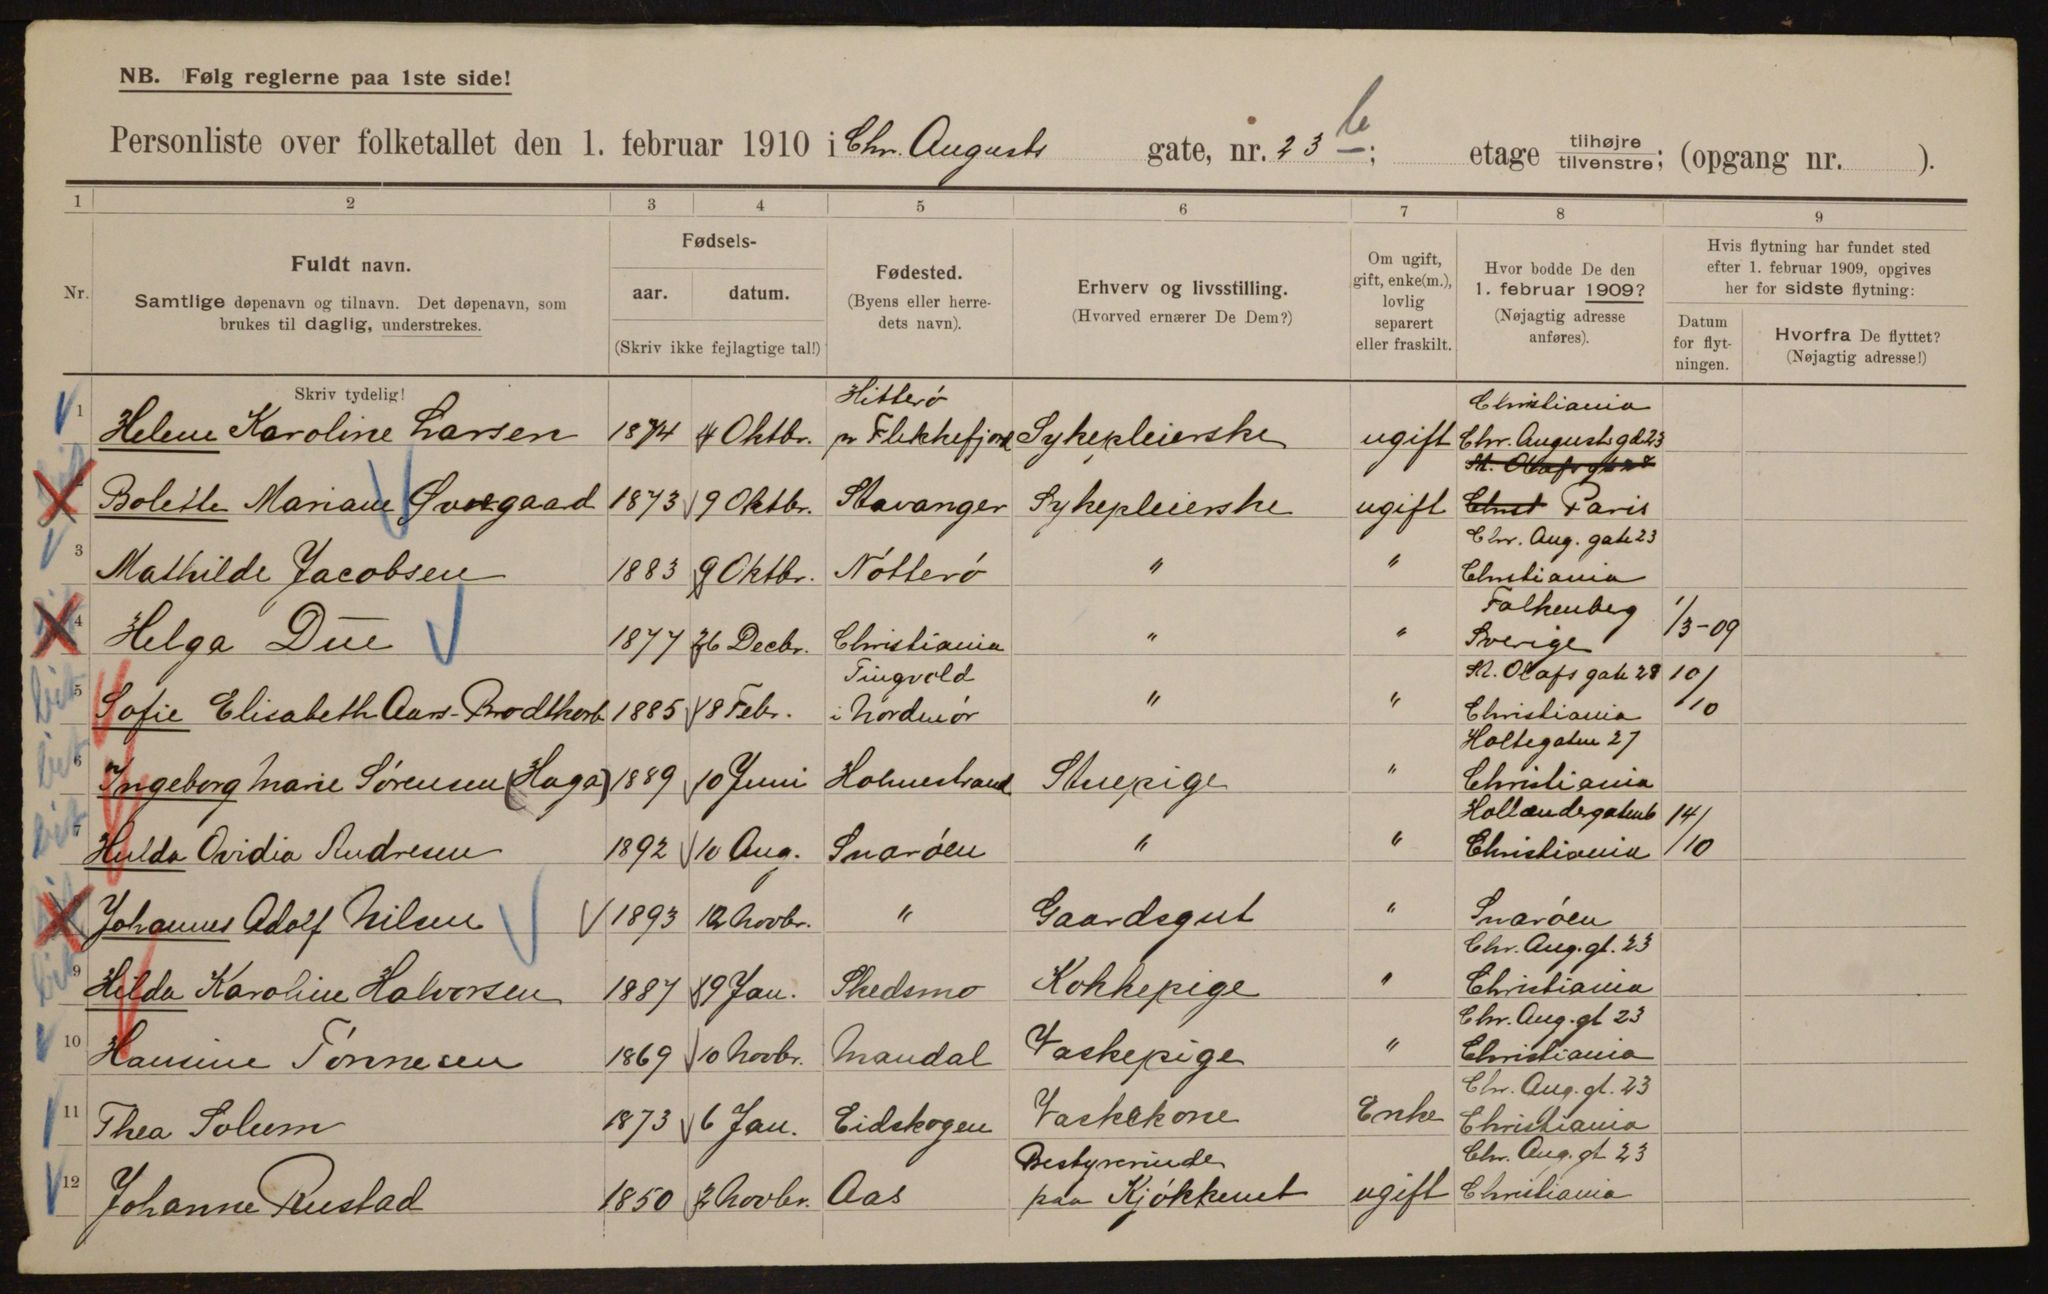 NB. Følg reglerne paa 1ste side!
Personliste over folketallet den 1. februar 1910 i Chr. Augusts gate, nr. 23 b; etage tilhøjre tilvenstre; (opgang nr. ).
1 2 3 4 5 6 7 8 9
Nr.
Fuldt navn.
Samtlige døpenavn og tilnavn. Det døpenavn, som
brukes til daglig, understrekes.
Fødsels-
aar. datum.
(Skriv ikke fejlagtige tal!)
Fødested.
(Byens eller herre-
dets navn).
Erhverv og livsstilling.
(Hvorved ernærer De Dem?)
Om ugift,
gift, enke(m.),
lovlig
separert
eller fraskilt.
Hvor bodde De den
1. februar 1909?
(Nøjagtig adresse
anføres).
Hvis flytning har fundet sted
efter 1. februar 1909, opgives
her for sidste flytning:
Datum
for flyt-
ningen.
Hvorfra De flyttet?
(Nøjagtig adresse!)
Skriv tydelig!
Hitterö Christiania
1 Helene Karoline Larsen 1874 4 Oktbr. pr Flekkefjord Sykepleierske ugift Chr. Augusts gd 23
St. Olafs gt 28
2 Bolette Mariane Øvregaard 1873 9 Oktbr. Stavanger Sykepleierske ugift Christ Paris
Chr. Aug. gate 23
3 Mathilde Jacobsen 1883 9 Oktbr. Nötterö " " Christiania
Falkenberg
4 Helga Due 1877 26 Decbr. Christiania " " Sverige 1/3-09
Tingvold St. Olafs gate 28
5 Sofie Elisabeth Aars-Brodtkorb 1885 18 Febr. i Nordmör " " Christiania 10/10
Holtegaten 27
6 Ingeborg Marie Sörensen (Haga) 1889 10 Juni Holmestrand Stuepige " Christiania
Hollændergaten 6
7 Hulda Ovidia Andresen 1892 10 Aug. Snaröen " " Christiania 14/10
Johannes Adolf Nilsen 1893 12 Novbr. " Gaardsgut " Snaröen
Chr. Aug. gt. 23
9 Hilda Karoline Halvorsen 1887 19 Jan. Skedsmo Kokkepige " Christiania
Chr. Aug. gt 23
10 Hansine Tönnesen 1869 10 Novbr. Mandal Vaskepige " Christiania
Chr. Aug. gt. 23
11 Thea Solum 1873 6 Jan. Eidskogen Vaskekone Enke Christiania
Bestyrerinde Chr. Aug. gt 23
12 Johanne Rustad 1850 2 Novbr. Aas paa Kjökkenet ugift Christiania